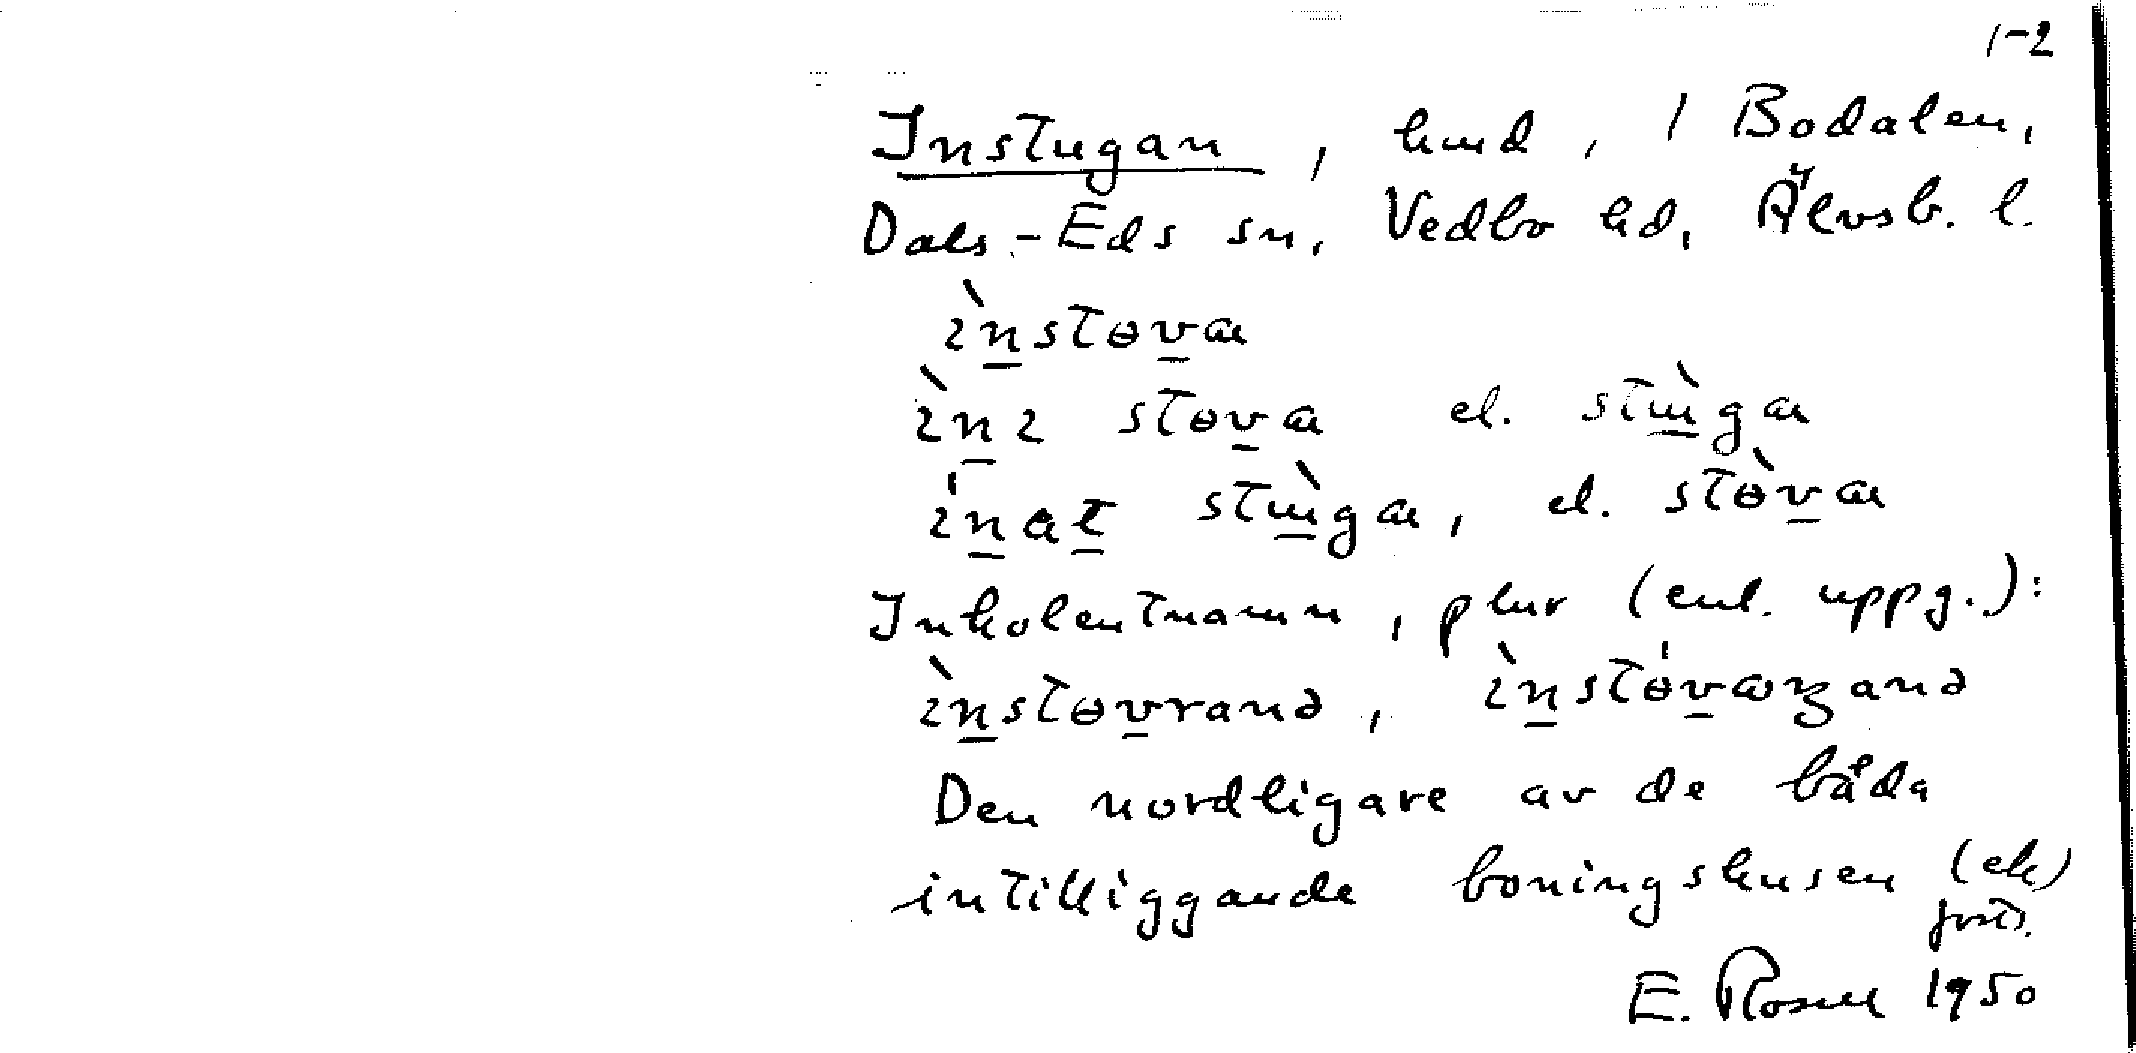 1-2
Instugan, hmd, 1 Bodalen,
Dals-Eds sn, Vedbo hd, Älvsb. l.
ìnstɵva
ìnɩ stɵva el. stùga
ínat stùga, el. stɵ̀va
Inkolentnamn, plur (enl. uppg.):
ìnstɵvranə, ìnstɵ́vaʒanə
Den nordligare av de båda
intilliggande boningshusen (ek)
forts.
E. Rosell 1950